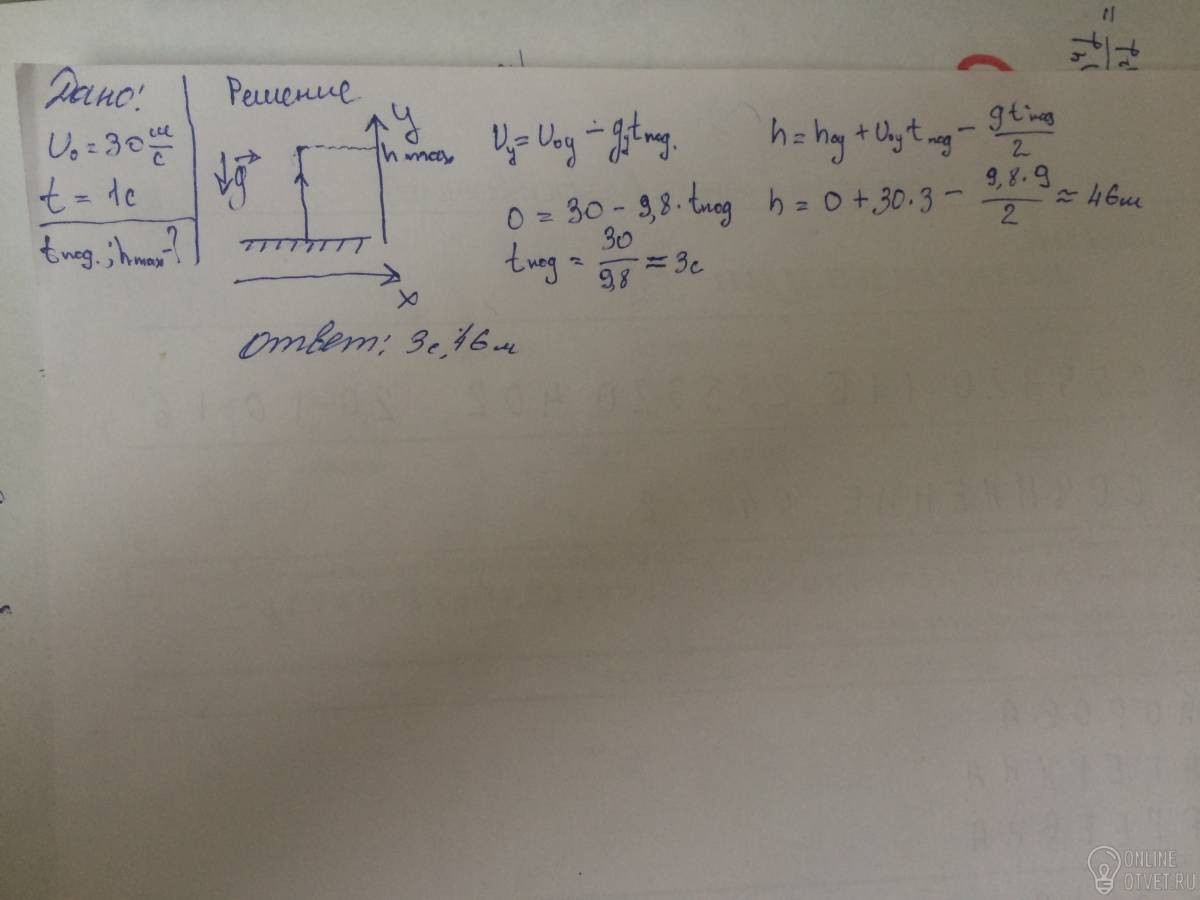 Дано:
V₀ = 30 м/с
t = 1с
tпод.; hmax - ?
Решение
g
y
hmax
x
Vy = V₀y - gy tпод.
0 = 30 - 9,8 · tпод
tпод = 30/9,8 ≈ 3с
h = h₀y + V₀y tпод - gt²под/2
h = 0 + 30·3 - 9,8·9/2 ≈ 46м
Ответ: 3с, 46м
ONLINE
OTVET.RU